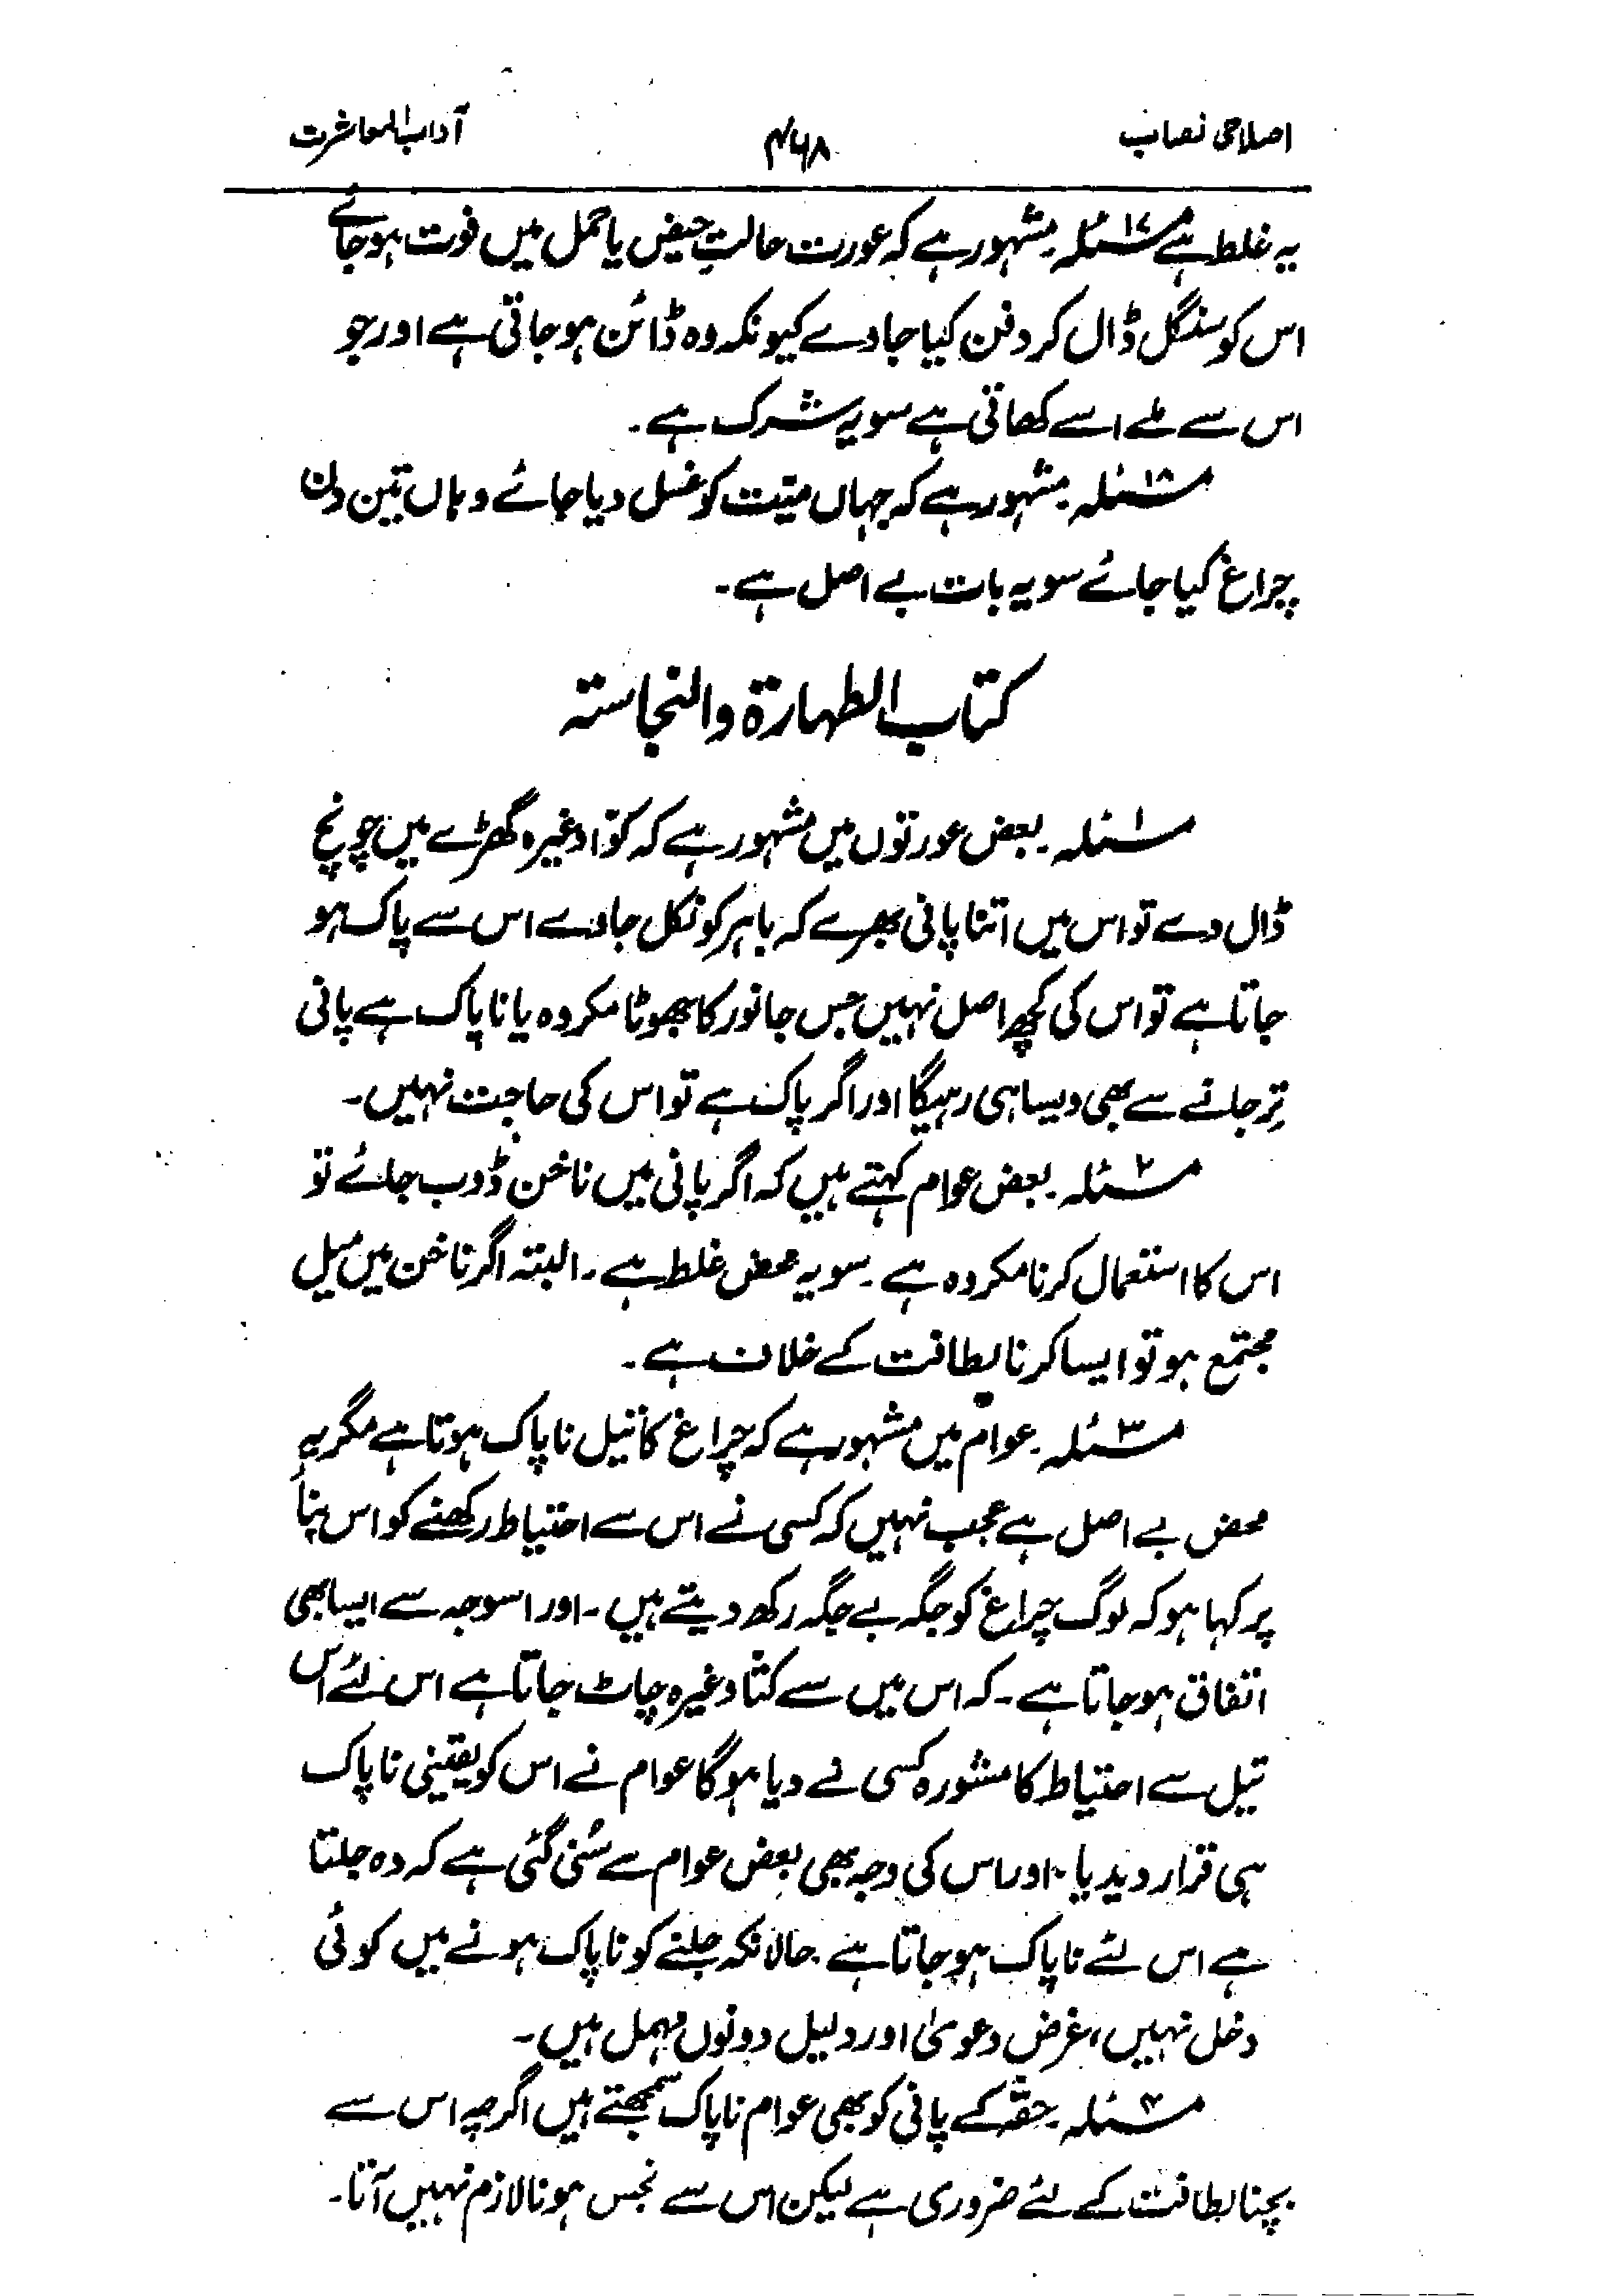 اصلاحی نصاب ۴۶۸ آداب المعاشرت
یہ غلط ہے مسئلہ ۱۷۔ مشہور ہے کہ عورت حالتِ حیض یا حمل میں فوت ہو جائے
اس کو سنگل ڈال کر دفن کیا جاوے کیونکہ وہ ڈائن ہو جاتی ہے اور جو
اس سے ملے اسے کھاتی ہے سو یہ شرک ہے۔
مسئلہ ۱۸۔ مشہور ہے کہ جہاں میّت کو غسل دیا جائے وہاں تین دن
چراغ کیا جائے سو یہ بات بے اصل ہے۔
کتاب الطہارۃ والنجاستہ
مسئلہ ۱۔ بعض عورتوں میں مشہور ہے کہ کوّا وغیرہ گھڑے میں چونچ
ڈال دے تو اس میں اتنا پانی بھرے کہ باہر کو نکل جاوے اس سے پاک ہو
جاتا ہے تو اس کی کچھ اصل نہیں جس جانور کا جھوٹا مکروہ یا ناپاک ہے پانی
تِر جانے سے بھی ویسا ہی رہیگا اور اگر پاک ہے تو اس کی حاجت نہیں۔
مسئلہ ۲۔ بعض عوام کہتے ہیں کہ اگر پانی میں ناخن ڈوب جائے تو
اس کا استعمال کرنا مکروہ ہے۔ سو یہ محض غلط ہے۔ البتہ اگر ناخن میں میل
مجتمع ہو تو ایسا کرنا لطافت کے خلاف ہے۔
مسئلہ ۳۔ عوام میں مشہور ہے کہ چراغ کا تیل ناپاک ہوتا ہے مگر یہ
محض بے اصل ہے عجب نہیں کہ کسی نے اس سے احتیاط رکھنے کو اس بناء
پر کہا ہو کہ لوگ چراغ کو جگہ بے جگہ رکھ دیتے ہیں۔ اور اسوجہ سے ایسا بھی
اتفاق ہو جاتا ہے۔ کہ اس میں سے کتّا وغیرہ چاٹ جاتا ہے اس لئے اس
تیل سے احتیاط کا مشورہ کسی نے دیا ہوگا عوام نے اس کو یقینی ناپاک
ہی قرار دیدیا۔ اور اس کی وجہ بھی بعض عوام سے سُنی گئی ہے کہ وہ جلتا
ہے اس لئے ناپاک ہو جاتا ہے۔ حالانکہ جلنے کو ناپاک ہونے میں کوئی
دخل نہیں، غرض دعویٰ اور دلیل دونوں مہمل ہیں۔
مسئلہ ۴۔ حقّہ کے پانی کو بھی عوام ناپاک سمجھتے ہیں اگرچہ اس سے
بچنا لطافت کے لئے ضروری ہے لیکن اس سے نجس ہونا لازم نہیں آتا۔